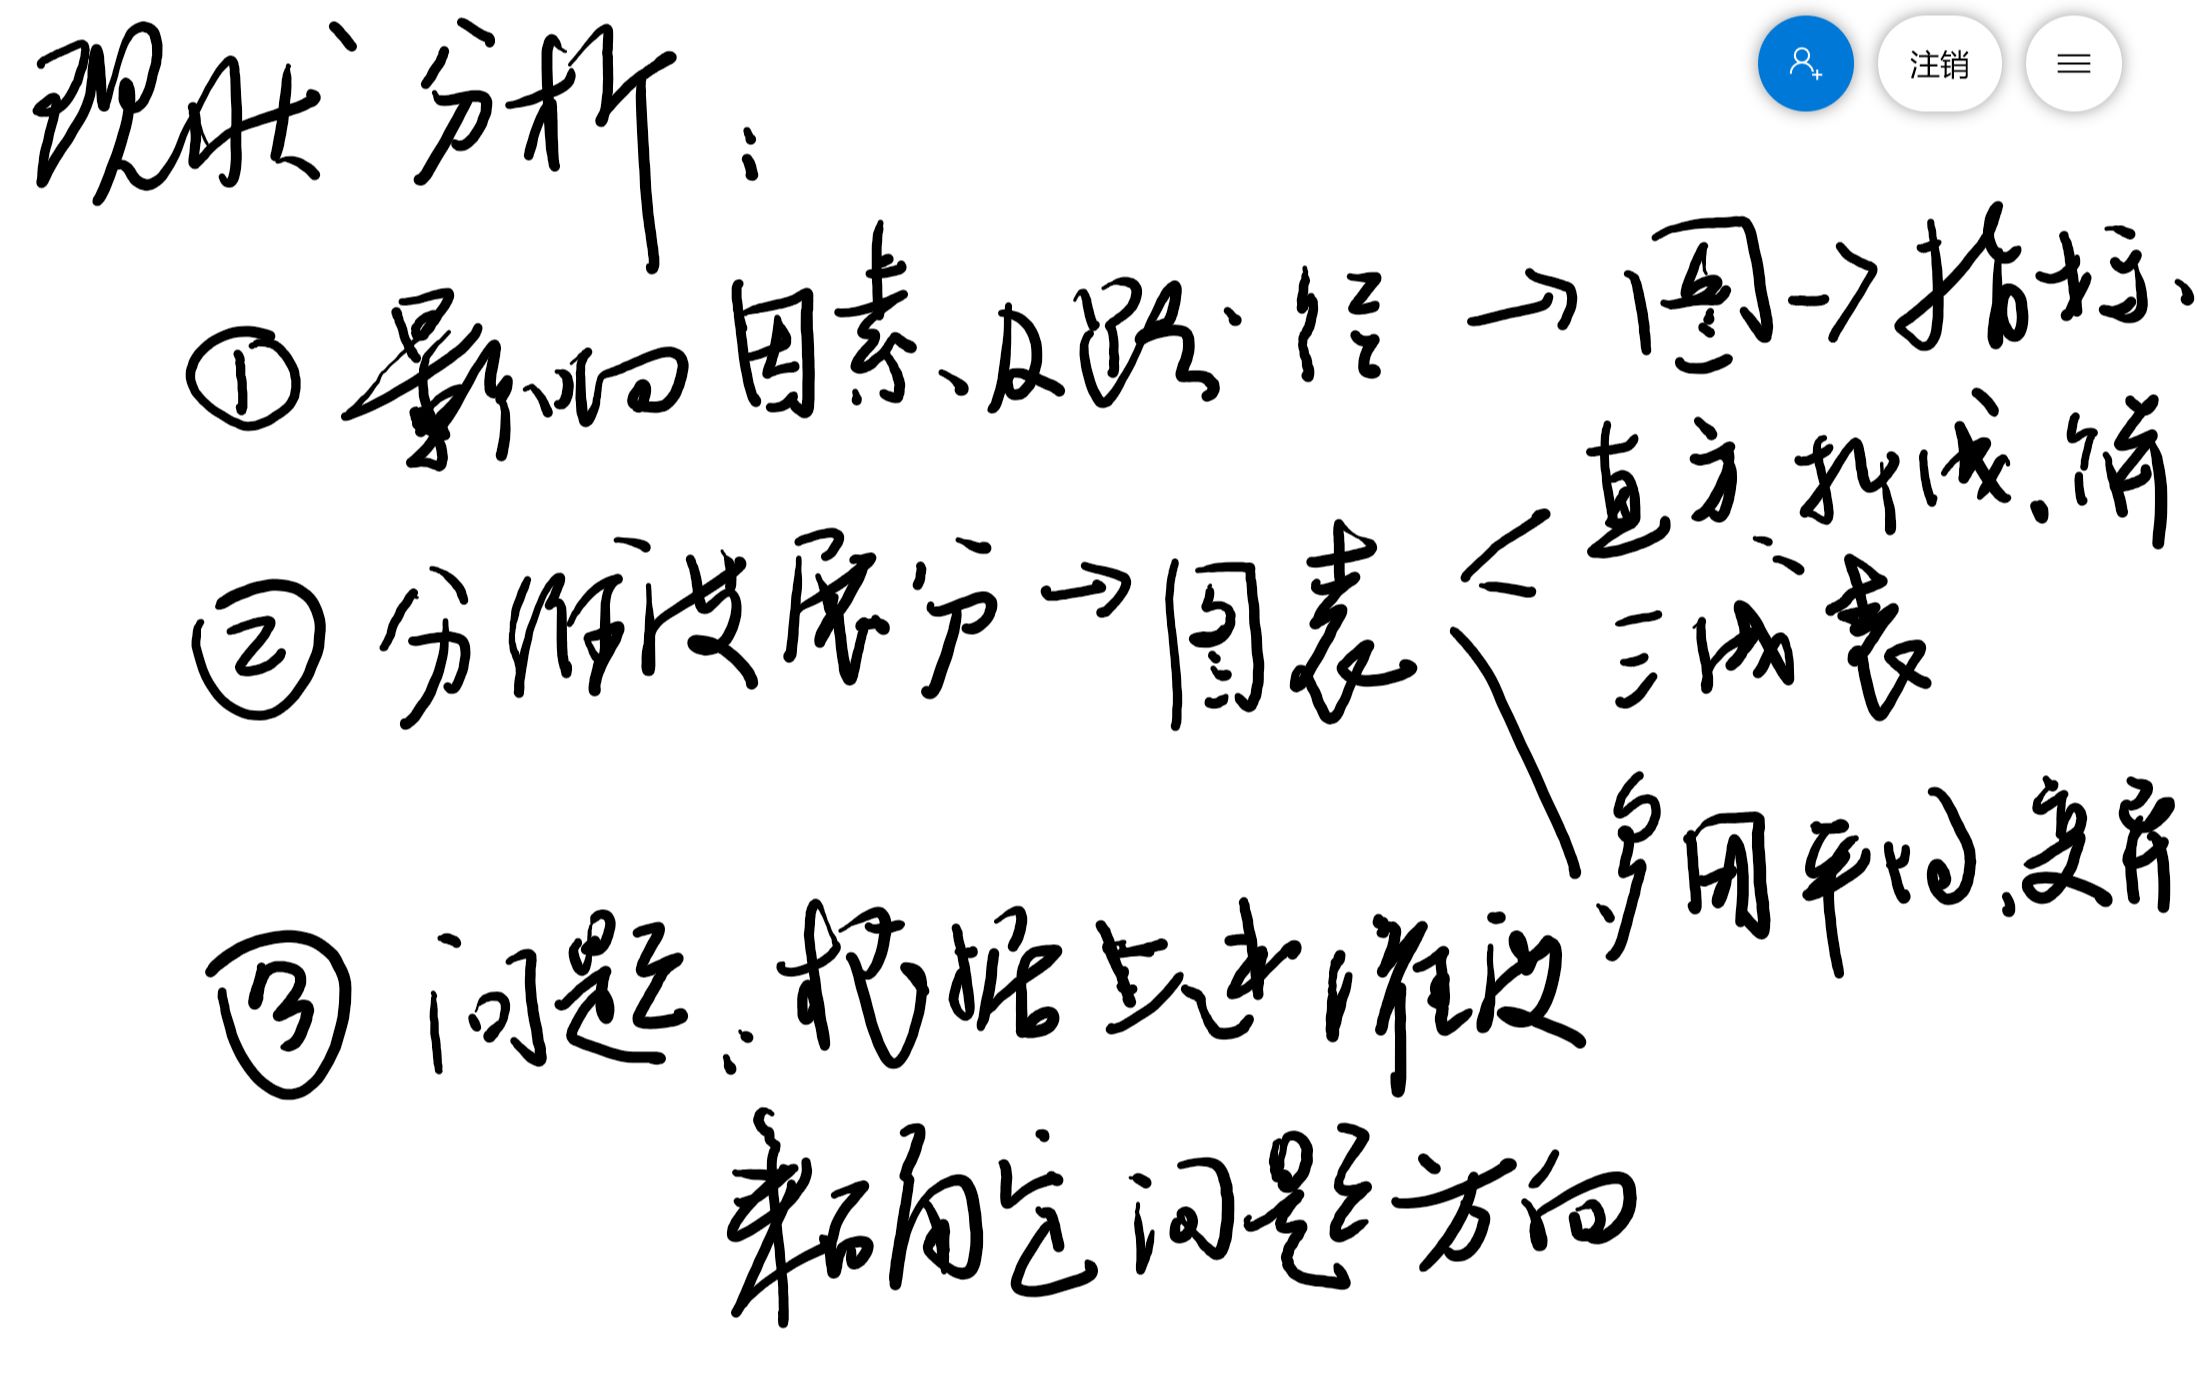 注销
现状分析：
① 影响因素、及路径 → 图 → 指标、
直方、折线、饼
② 分维度展分 → 图表 < 三线表
多用平均、变异
③ 问题：根据上述维度
来确定问题方向